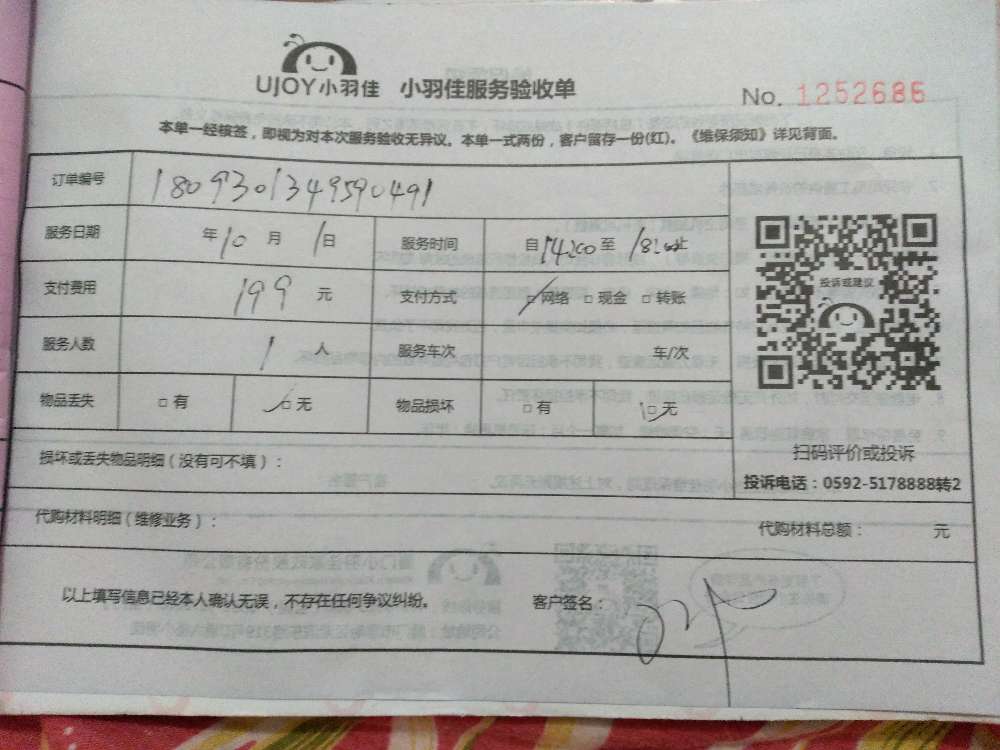 UJOY小羽佳 小羽佳服务验收单
No. 1252686
本单一经核签，即视为对本次服务验收无异议。本单一式两份，客户留存一份(红)。《维保须知》详见背面。
订单编号 1809301349590491
服务日期 年10月1日 服务时间 自14:00至18:00止
支付费用 199元 支付方式 □网络 □现金 □转账
服务人数 1人 服务车次 车/次
物品丢失 □有 □无 物品损坏 □有 □无
投诉或建议
扫码评价或投诉
投诉电话：0592-5178888转2
损坏或丢失物品明细（没有可不填）：
代购材料明细（维修业务）： 代购材料总额： 元
以上填写信息已经本人确认无误，不存在任何争议纠纷。 客户签名：